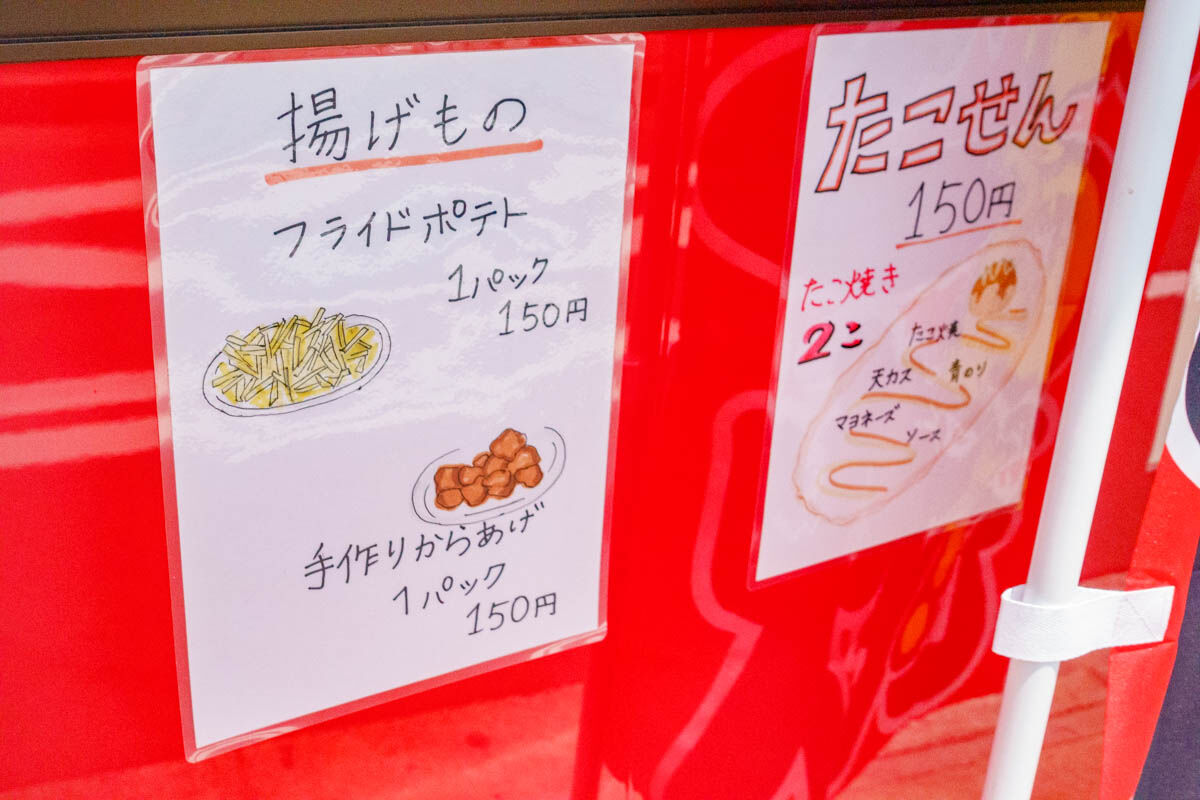 揚げもの
フライドポテト
1パック
150円
手作りからあげ
1パック
150円
たこせん
150円
たこ焼き
2こ
たこ焼
天カス
青のり
マヨネーズ
ソース